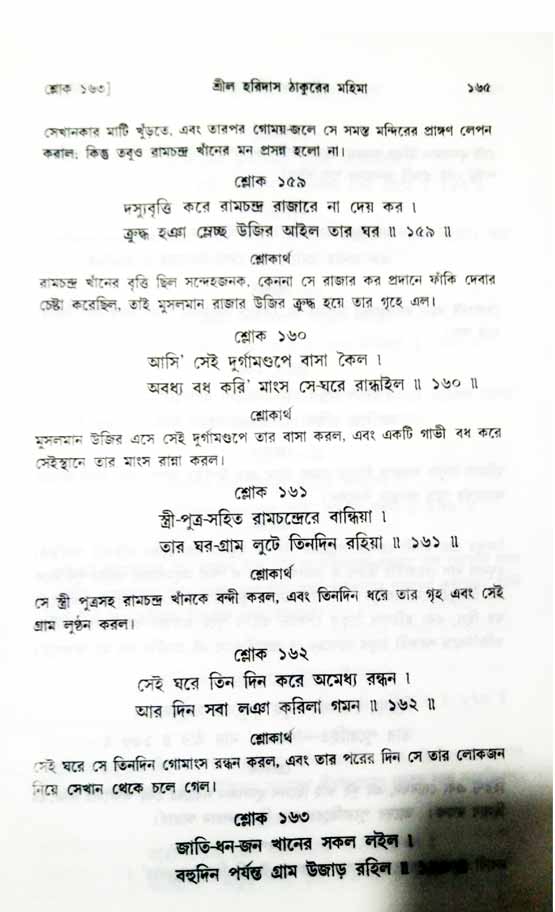 শ্লোক ১৬৩] শ্রীল হরিদাস ঠাকুরের মহিমা ১৬৫
সেখানকার মাটি খুঁড়তে, এবং তারপর গোময়-জলে সে সমস্ত মন্দিরের প্রাঙ্গণ লেপন
করাল; কিন্তু তবুও রামচন্দ্র খাঁনের মন প্রসন্ন হলো না।
শ্লোক ১৫৯
দস্যুবৃত্তি করে রামচন্দ্র রাজারে না দেয় কর ।
ক্রুদ্ধ হঞা ম্লেচ্ছ উজির আইল তার ঘর ॥ ১৫৯ ॥
শ্লোকার্থ
রামচন্দ্র খাঁনের বৃত্তি ছিল সন্দেহজনক, কেননা সে রাজার কর প্রদানে ফাঁকি দেবার
চেষ্টা করেছিল, তাই মুসলমান রাজার উজির ক্রুদ্ধ হয়ে তার গৃহে এল।
শ্লোক ১৬০
আসি' সেই দুর্গামণ্ডপে বাসা কৈল ।
অবধ্য বধ করি' মাংস সে-ঘরে রান্ধাইল ॥ ১৬০ ॥
শ্লোকার্থ
মুসলমান উজির এসে সেই দুর্গামণ্ডপে তার বাসা করল, এবং একটি গাভী বধ করে
সেইস্থানে তার মাংস রান্না করল।
শ্লোক ১৬১
স্ত্রী-পুত্র-সহিত রামচন্দ্রেরে বান্ধিয়া ।
তার ঘর-গ্রাম লুটে তিনদিন রহিয়া ॥ ১৬১ ॥
শ্লোকার্থ
সে স্ত্রী পুত্রসহ রামচন্দ্র খাঁনকে বন্দী করল, এবং তিনদিন ধরে তার গৃহ এবং সেই
গ্রাম লুণ্ঠন করল।
শ্লোক ১৬২
সেই ঘরে তিন দিন করে অমেধ্য রন্ধন ।
আর দিন সবা লঞা করিলা গমন ॥ ১৬২ ॥
শ্লোকার্থ
সেই ঘরে সে তিনদিন গোমাংস রন্ধন করল, এবং তার পরের দিন সে তার লোকজন
নিয়ে সেখান থেকে চলে গেল।
শ্লোক ১৬৩
জাতি-ধন-জন খানের সকল লইল ।
বহুদিন পর্যন্ত গ্রাম উজাড় রহিল ॥